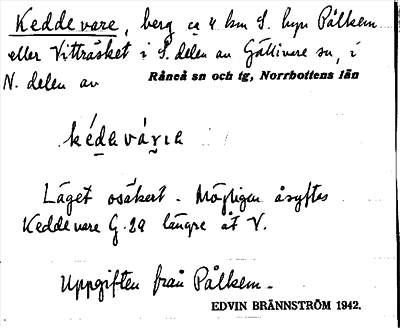 Keddevare, berg ca 4 km S. byn Pålkem
eller Vitträsket i S. delen av Gällivare sn, i
N. delen av Råneå sn och tg, Norrbottens län
kédaváʀıɛ
Läget osäkert. Möjligen åsyftas
Keddevare G. 29 längre åt V.
Uppgiften från Pålkem.
EDVIN BRÄNNSTRÖM 1942.